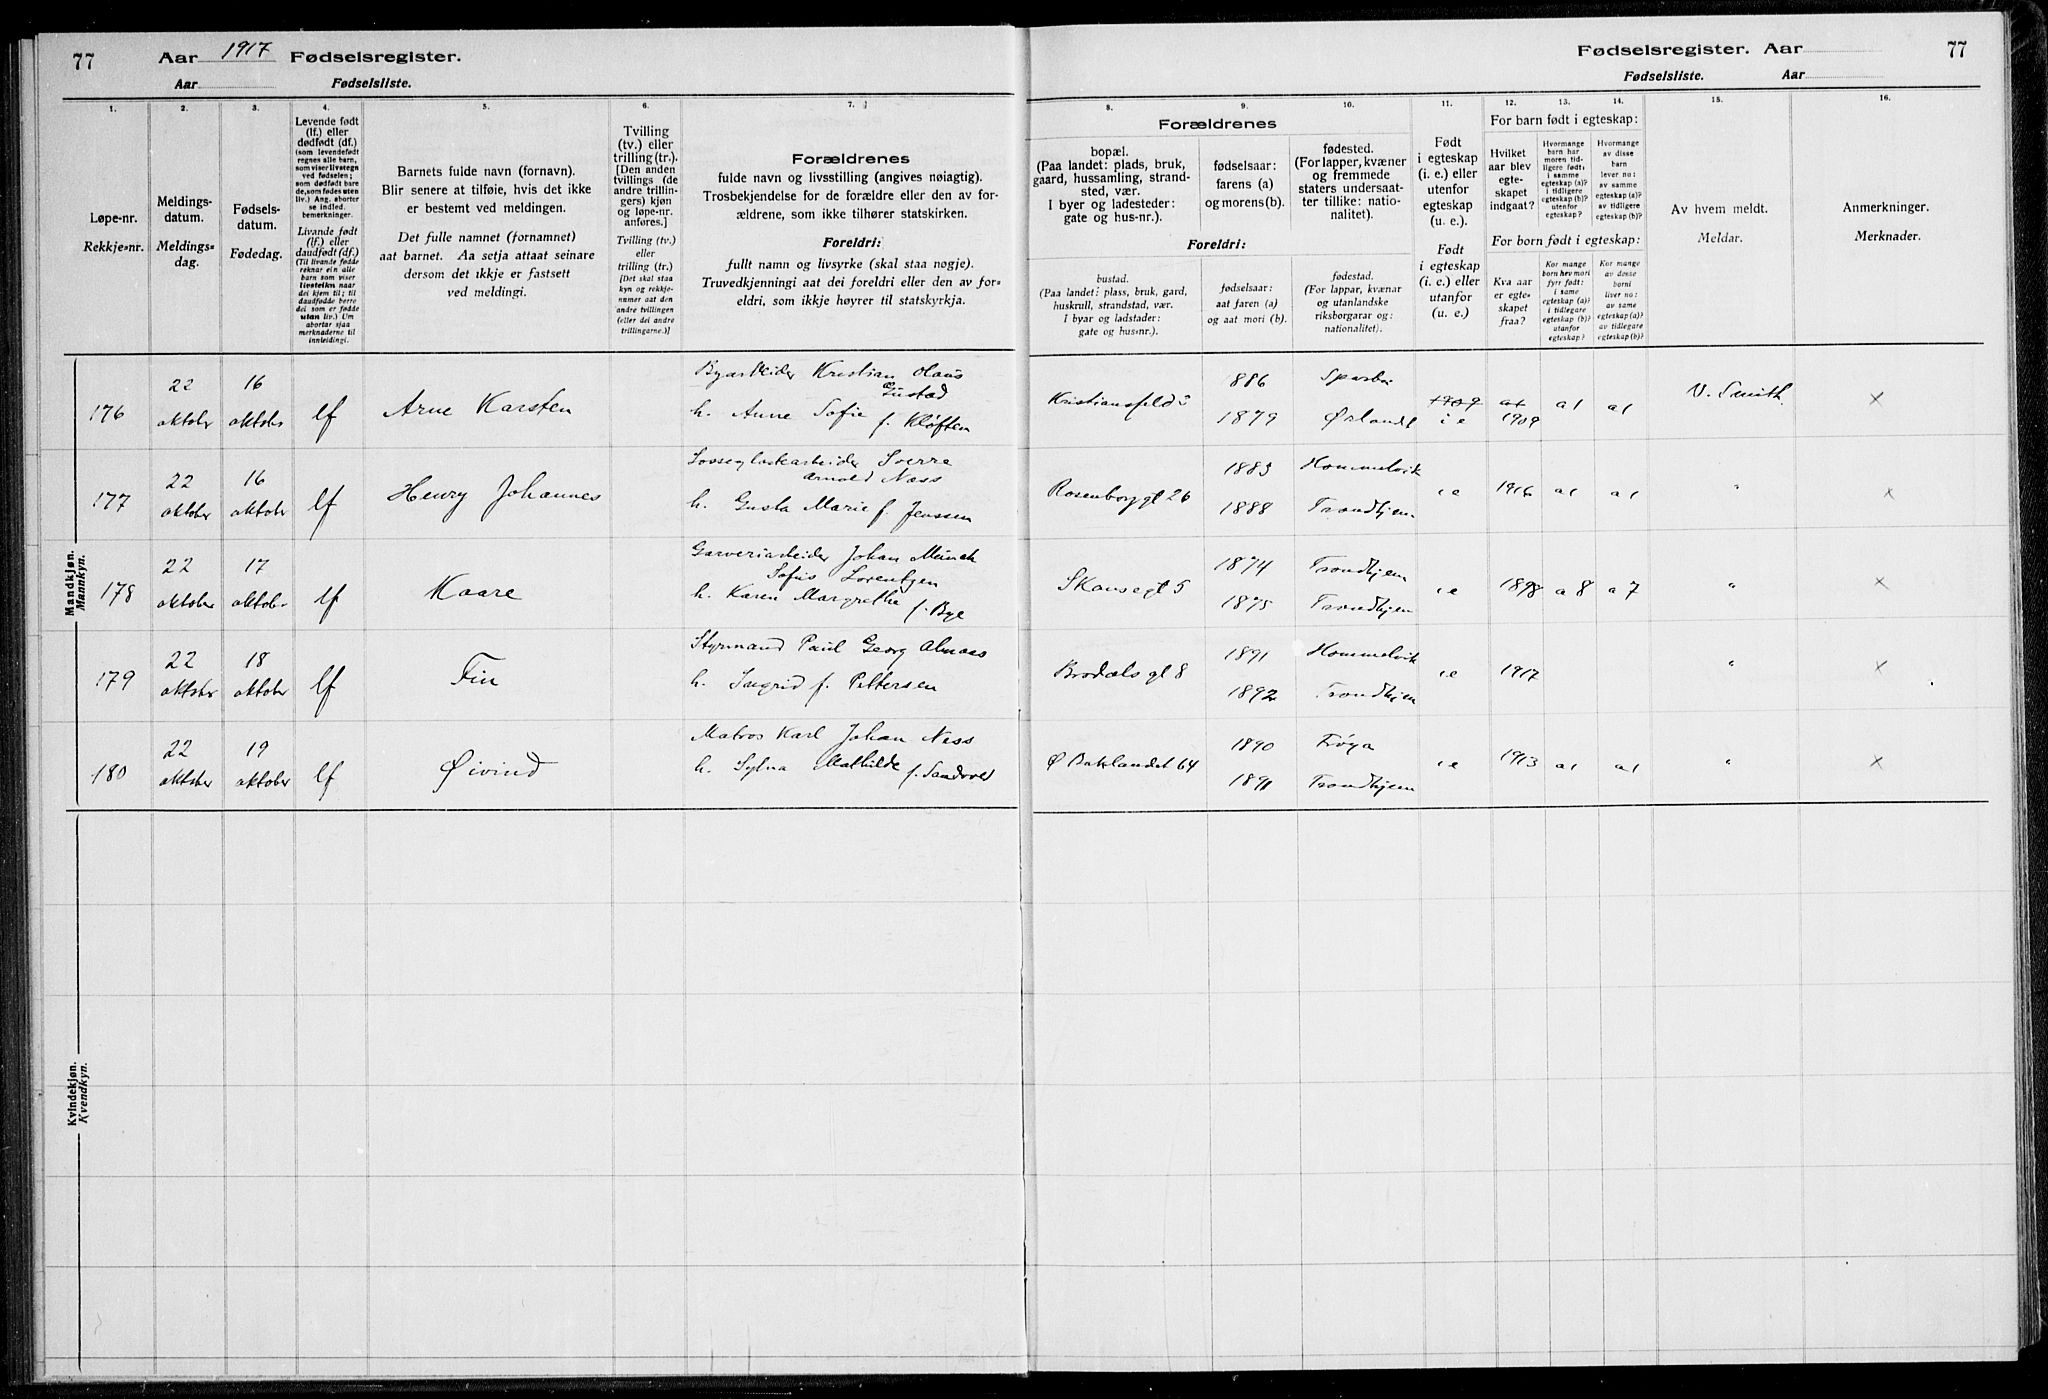 77 Aar 1917 Fødselsregister.
Aar Fødselsliste.
1. 2. 3. 4. 5. 6. 7.
Løpe-nr.
Rekkje-nr.
Meldings-
datum.
Meldings-
dag.
Fødsels-
datum.
Fødedag.
Levende født
(lf.) eller
dødfødt (df.)
(som levendefødt
regnes alle barn,
som viser livstegn
ved fødselen;
som dødfødt bare
de, som fødes uten
liv.) Ang. aborter
se indled.
bemerkninger.
Livande født
(lf.) eller
daudfødt (df.)
(Til livande fødde
reknar ein alle
barn som viser
livsteikn naar
dei kjem til; til
daudfødde berre
dei som er fødde
utan liv.) Um
abortar sjaa
merknaderne til
innleidingi.
Barnets fulde navn (fornavn).
Blir senere at tilføie, hvis det ikke
er bestemt ved meldingen.
Det fulle namnet (fornamnet)
aat barnet. Aa setja attaat seinare
dersom det ikkje er fastsett
ved meldingi.
Tvilling
(tv.) eller
trilling (tr.).
[Den anden
tvillings (de
andre trillin-
gers) kjøn
og løpe-nr.
anføres.]
Tvilling (tv.)
eller
trilling (tr.)
[Det skal staa
kyn og rekkje-
nummer aat den
andre tvillingen
(eller dei andre
trillingarne.)]
Forældrenes
fulde navn og livsstilling (angives nøiagtig).
Trosbekjendelse for de forældre eller den av for-
ældrene, som ikke tilhører statskirken.
Foreldri:
fullt namn og livsyrke (skal staa nøgje).
Truvedkjenningi aat dei foreldri eller den av for-
eldri, som ikkje høyrer til statskyrkja.
Mandkjøn.
Mannkyn.
176
22
oktober
16
oktober
lf
Arne Karsten
Kristian Olaus
Gustad
h. Anne Sofie f. Kløften
177
22
oktober
16
oktober
lf
Henry Johannes
Sverre
Arnold Næss
h. Gusta Marie f. Jenssen
178
22
oktober
17
oktober
lf
Kaare
Garveriarbeider Johan Münch
Sofus Lorentzen
h. Karen Margrethe
f. Bye
179
22
oktober
18
oktober
lf
Fin
Styrmand Paul Georg Almaas
h. Ingrid f. Pettersen
180
22
oktober
19
oktober
lf
Øivind
Matros Karl Johan Næss
h. Sylvia Mathilde f. Sandvold
Kvindekjøn.
Kvendkyn.
Fødselsregister. Aar 77
Fødselsliste. Aar
8. 9. 10. 11. 12. 13. 14. 15. 16.
Forældrenes
bopæl.
(Paa landet: plads, bruk,
gaard, hussamling, strand-
sted, vær.
I byer og ladesteder:
gate og hus-nr.).
fødselsaar:
farens (a)
og morens (b).
fødested.
(For lapper, kvæner
og fremmede
staters undersaat-
ter tillike: natio-
nalitet).
Foreldri:
bustad.
(Paa landet: plass, bruk, gard,
huskrull, strandstad, vær.
I byar og ladstader:
gate og hus-nr.).
fødselsaar:
aat faren (a)
og aat mori (b).
fødestad.
(For lappar, kvænar
og utanlandske
riksborgarar og:
nationalitet).
Født
i egteskap
(i. e.) eller
utenfor
egteskap
(u. e.).
Født
i egteskap
(i. e.) eller
utanfor
(u. e.)
For barn født i egteskap:
Hvilket
aar blev
egte-
skapet
indgaat?
Hvormange
barn har
moren tid-
ligere født:
i samme
egteskap (a)?
i tidligere
egteskap (b)?
utenfor
egteskap?
Hvormange
av disse
barn
lever nu:
av samme
egteskap (a)?
av tidligere
egteskap (b)?
For born født i egteskap:
Kva aar
er egte-
skapet
fraa?
Kor mange
born hev mori
fyrr født:
i same
egteskap (a)?
i tidlegare
egteskap (b)?
utanfor
egteskap?
Kor mange
av desse
borni
liver no:
av same
egteskap (a)?
av tidlegare
egteskap (b)?
Av hvem meldt.
Meldar.
Anmerkninger.
Merknader.
Kristiansfeldt 3
1886
1879
Sparbu
Ørlandet
1909
i e
1909
a 1
a 1
V. Smith.
×
Rosenborg gt 26
1885
1888
Hommelvik
Trondhjem
i e
1916
a 1
a 1
"
×
Skansegt 5
1874
1875
Trondhjem
Trondhjem
i e
1898
a 8
a 7
"
×
Brodals gt 8
1891
1892
Hommelvik
Trondhjem
i e
1917
"
×
Ø Baklandet 64
1890
1891
Frøya
Trondhjem
i e
1913
a 1
a 1
"
×